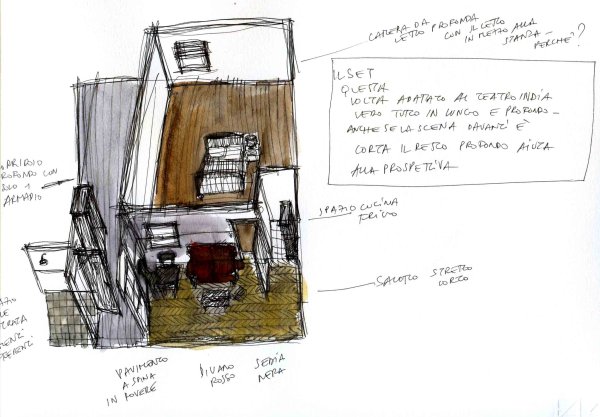 CAMERA DA
LETTO PROFONDA
CON IL LETTO
IN MEZZO ALLA
STANZA –
PERCHÉ?
IL SET
QUESTA
VOLTA ADATTATO AL TEATRO INDIA
VERO TUTTO IN LUNGO E PROFONDO –
ANCHE SE LA SCENA DAVANTI È
CORTA IL RESTO PROFONDO AIUTA
ALLA PROSPETTIVA
CON
SOLO 1
ARMADIO
SPAZIO CUCINA
SALOTTO STRETTO
CORTO
PAVIMENTO
A SPINA
IN ROVERE
DIVANO
ROSSO
SEDIA
NERA